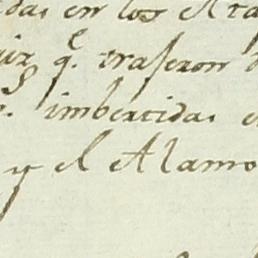 das en los Ata
q.e traxeron
imbertidas e
y el Alamo